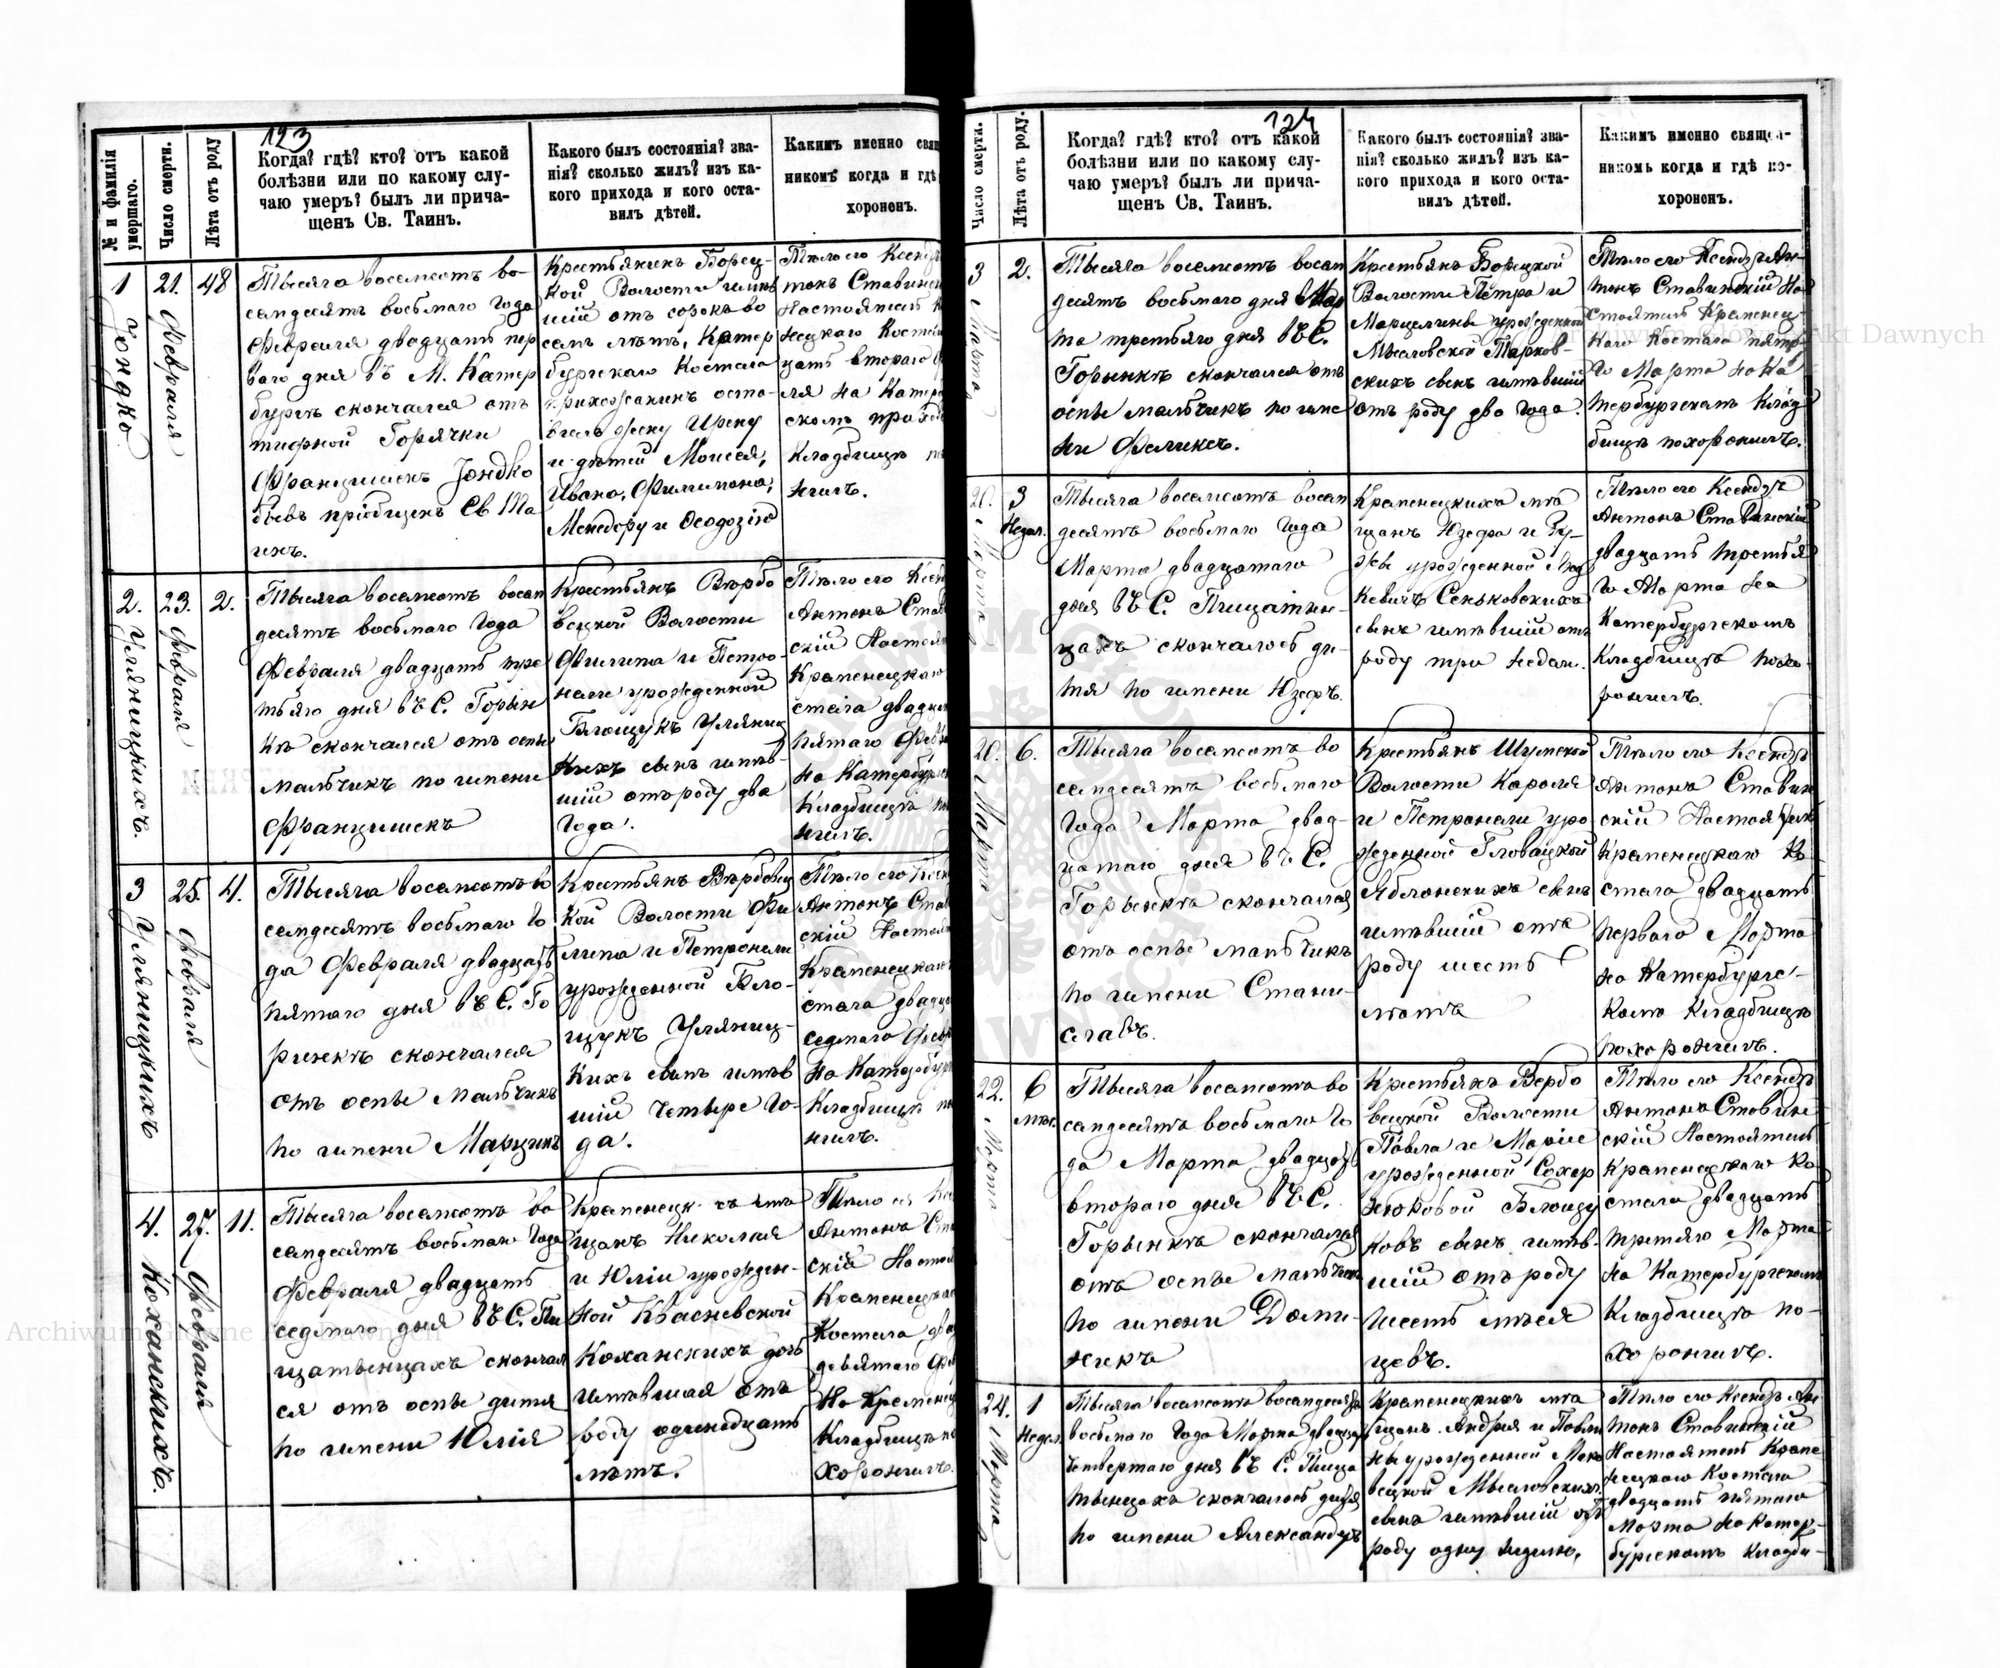 123
№ и фамилія умершаго.
Число смерти.
Лѣта отъ роду
Когда? гдѣ? кто? отъ какой
болѣзни или по какому слу-
чаю умеръ? былъ ли прича-
щенъ Св. Таинъ.
Какого былъ состоянія? зва-
нія? сколько жилъ? изъ ка-
кого прихода и кого оста-
вилъ дѣтей.
Какимъ именно свящ
никомъ когда и гдѣ
хороненъ.
1
Јондко
21.
Февраля
48
Тысяча восемсотъ во-
семдесятъ восьмаго года
Февраля двадцать пер
ваго дня въ М. Катер
бургѣ скончался отъ
тифной Горячки
Францишекъ Јондко
бывъ пріобщенъ Св Та
инъ.
Крестьянинъ Борец-
кой Волости имѣв
шій отъ сорокъ во
семъ лѣтъ, Катер
бургскаго Костела
прихожанинъ оста-
вилъ жену Ирену
и дѣтей Моисея,
Ивана, Филимона,
и Ѳеодозію
Тѣло его Ксендзъ
тонъ Ставинс
Настоятель К
нецкаго Косте
цать втораго Ф
ля на Катерб
скомъ приход
Кладбищѣ п
нилъ.
2.
Уляницкихъ.
23.
Февраля
2.
Тысяча восемсотъ восем
десятъ восьмаго Года
Февраля двадцать тре
тьяго дня въ С. Горын
кѣ скончался отъ оспы
мальчикъ по имени
Францишекъ
Крестьянъ Вербо
вецкой Волости
Филипа и Петро-
нели урожденной
Блощукъ Уляниц
кихъ сынъ имѣв-
шій отъ роду два
Года.
Тѣло его Ксенд
Антонъ Став
скій Настоят
Кременецкаго
стела двадца
пятаго Февр
на Катербургс
Кладбищѣ по
нилъ.
3
Уляницкихъ
25.
Февраля
4.
Тысяча восемсотъ во
семдесятъ восьмаго Го
да Февраля двадцать
пятаго дня въ С. Го
ринкѣ скончался
отъ оспы мальчикъ
по имени Марцинъ
Крестьянъ Вербовец
кой Волости Фи
липа и Петронели
урожденной Бло-
щукъ Уляниц-
кихъ сынъ имѣв
шій четыре го-
да.
Тѣло его Ксен
Антонъ Став
скій Настоя
Кременецкаго
стела двадца
седмаго Февр
на Катербург
Кладбищѣ по
нилъ.
4.
Коханскихъ.
27.
Февраля
11.
Тысяча восемсотъ во
семдесятъ восьмаго Года
Февраля двадцать
седмаго дня въ С. Пи
щатынцахъ скончал
ся отъ оспы дитя
по имени Юлія
Кременецк хъ мѣ
щанъ Николая
и Юліи урожден-
ной Квасневской
Коханскихъ дочь
имѣвшая отъ
роду одинадцать
лѣтъ.
Тѣло ея Ксе
Антонъ Ста
скій Настоя
Кременецкаго
Костела двад
девятаго Фев
На Кременец
Кладбищѣ по
хоронилъ.
124
Число смерти.
Лѣта отъ роду.
Когда? гдѣ? кто? отъ какой
болѣзни или по какому слу-
чаю умеръ? былъ ли прича-
щенъ Св. Таинъ.
Какого былъ состоянія? зва-
нія? сколько жилъ? изъ ка-
кого прихода и кого оста-
вилъ дѣтей.
Какимъ именно священ-
никомъ когда и гдѣ по-
хороненъ.
3
Марта
2.
Тысяча восемсотъ восем
десятъ восьмаго дня Мар
та третьяго дня въ С.
Горынкѣ скончался отъ
оспы мальчикъ по име
ни Феликсъ.
Крестьянъ Борецкой
Волости Петра и
Марцелины урожденной
Мысловской Марков-
скихъ сынъ имѣвшій
отъ роду два Года.
Тѣло его Ксендзъ Ан-
тонъ Ставинскій На
стоятель Кременец-
каго Костела пята-
го Марта на Ка
тербургскомъ Клад
бищѣ похоронилъ.
20.
Марта
3
Недѣл.
Тысяча восемсотъ восем
десятъ восьмаго Года
Марта двадцатаго
дня въ С. Пищатин-
цахъ скончалось ди-
тя по имени Юзефъ.
Кременецкихъ мѣ
щанъ Юзефа и Ру-
жи урожденной
кевичъ Сеньковскихъ
сынъ имѣвшій отъ
роду три недѣли.
Тѣло его Ксендзъ
Антонъ Ставинскій
двадцать третья
го Марта на
Катербургскомъ
Кладбищѣ похо-
ронилъ.
20.
Марта
6.
Тысяча восемсотъ во
семдесятъ восьмаго
Года Марта двад-
цатаго дня въ С.
Горынкѣ скончался
отъ оспы мальчикъ
по имени Стани-
славъ.
Крестьянъ Шумской
Волости Кароля
и Петронели уро
жденной Гловацкой
Яблонскихъ сынъ
имѣвшій отъ
роду шесть
лѣтъ
Тѣло его Ксендзъ
Антонъ Ставин
скій Настоятель
Кременецкаго Ко
стела двадцать
перваго Марта
на Катербургс-
комъ Кладбищѣ
похоронилъ.
22.
Марта
6
мѣс.
Тысяча восемсотъ во
семдесятъ восьмаго Го
да Марта двадцать
втораго дня въ С.
Горынкѣ скончался
отъ оспы мальчикъ
по имени Доми-
никъ
Крестьянъ Вербо
вецкой Волости
Павла и Маріи
урожденной Сохар
нюковой Блощу
ковъ сынъ имѣв-
шій отъ роду
шесть мѣся
цевъ.
Тѣло его Ксендзъ
Антонъ Ставин-
скій Настоятель
Кременецкаго Ко-
стела двадцать
третяго Марта
на Катербургскомъ
Кладбищѣ по-
хоронилъ.
24.
Марта
1
Недѣл.
Тысяча восемсотъ восемдесятъ
восьмаго Года Марта двадцать
четвертаго дня въ С. Пища
тынцахъ скончалось дитя
по имени Александръ
Кременецкихъ мѣ
щанъ Андрея и Павли
ны урожденной Мако
вецкой Мысловскихъ
сынъ имѣвшій отъ
роду одну недѣлю.
Тѣло его Ксендзъ Ан-
тонъ Ставинскій
Настоятель Креме
нецкаго Костела
двадцать пятаго
Марта на Катер-
бургскомъ Кладби-
Archiwum Główne Akt Dawnych
Archiwum Główne Akt Dawnych